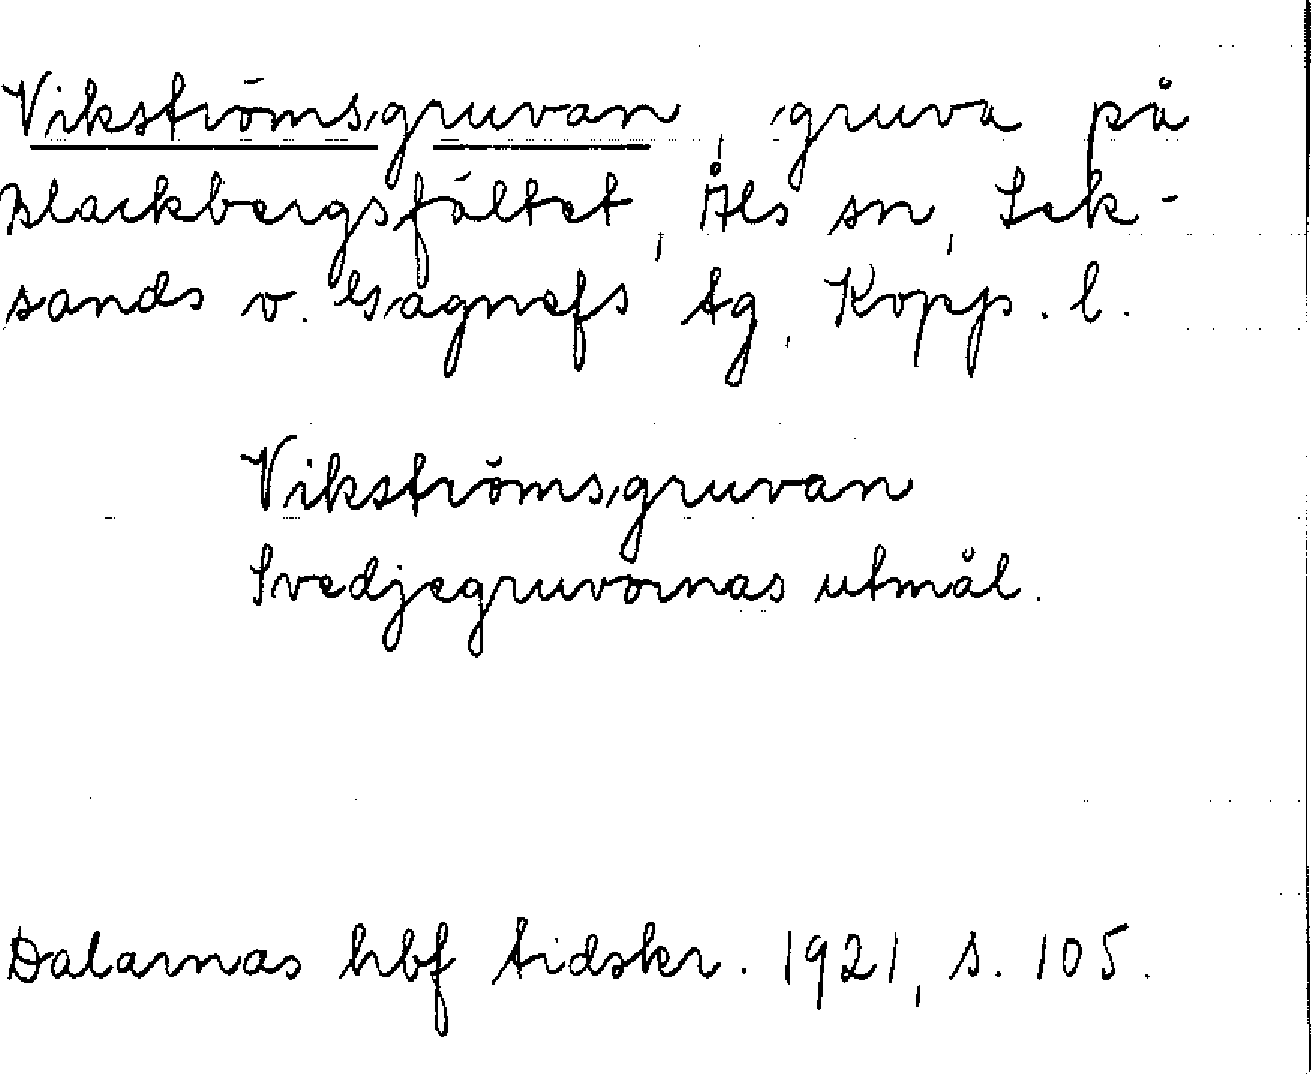 Vikströmsgruvan, gruva på
Blackbergsfältet, Åls sn, Lek-
sands o. Gagnefs tg, Kopp. l.
Vikströmsgruvan
Svedjegruvornas utmål.
Dalarnas hbf tidskr. 1921, s. 105.